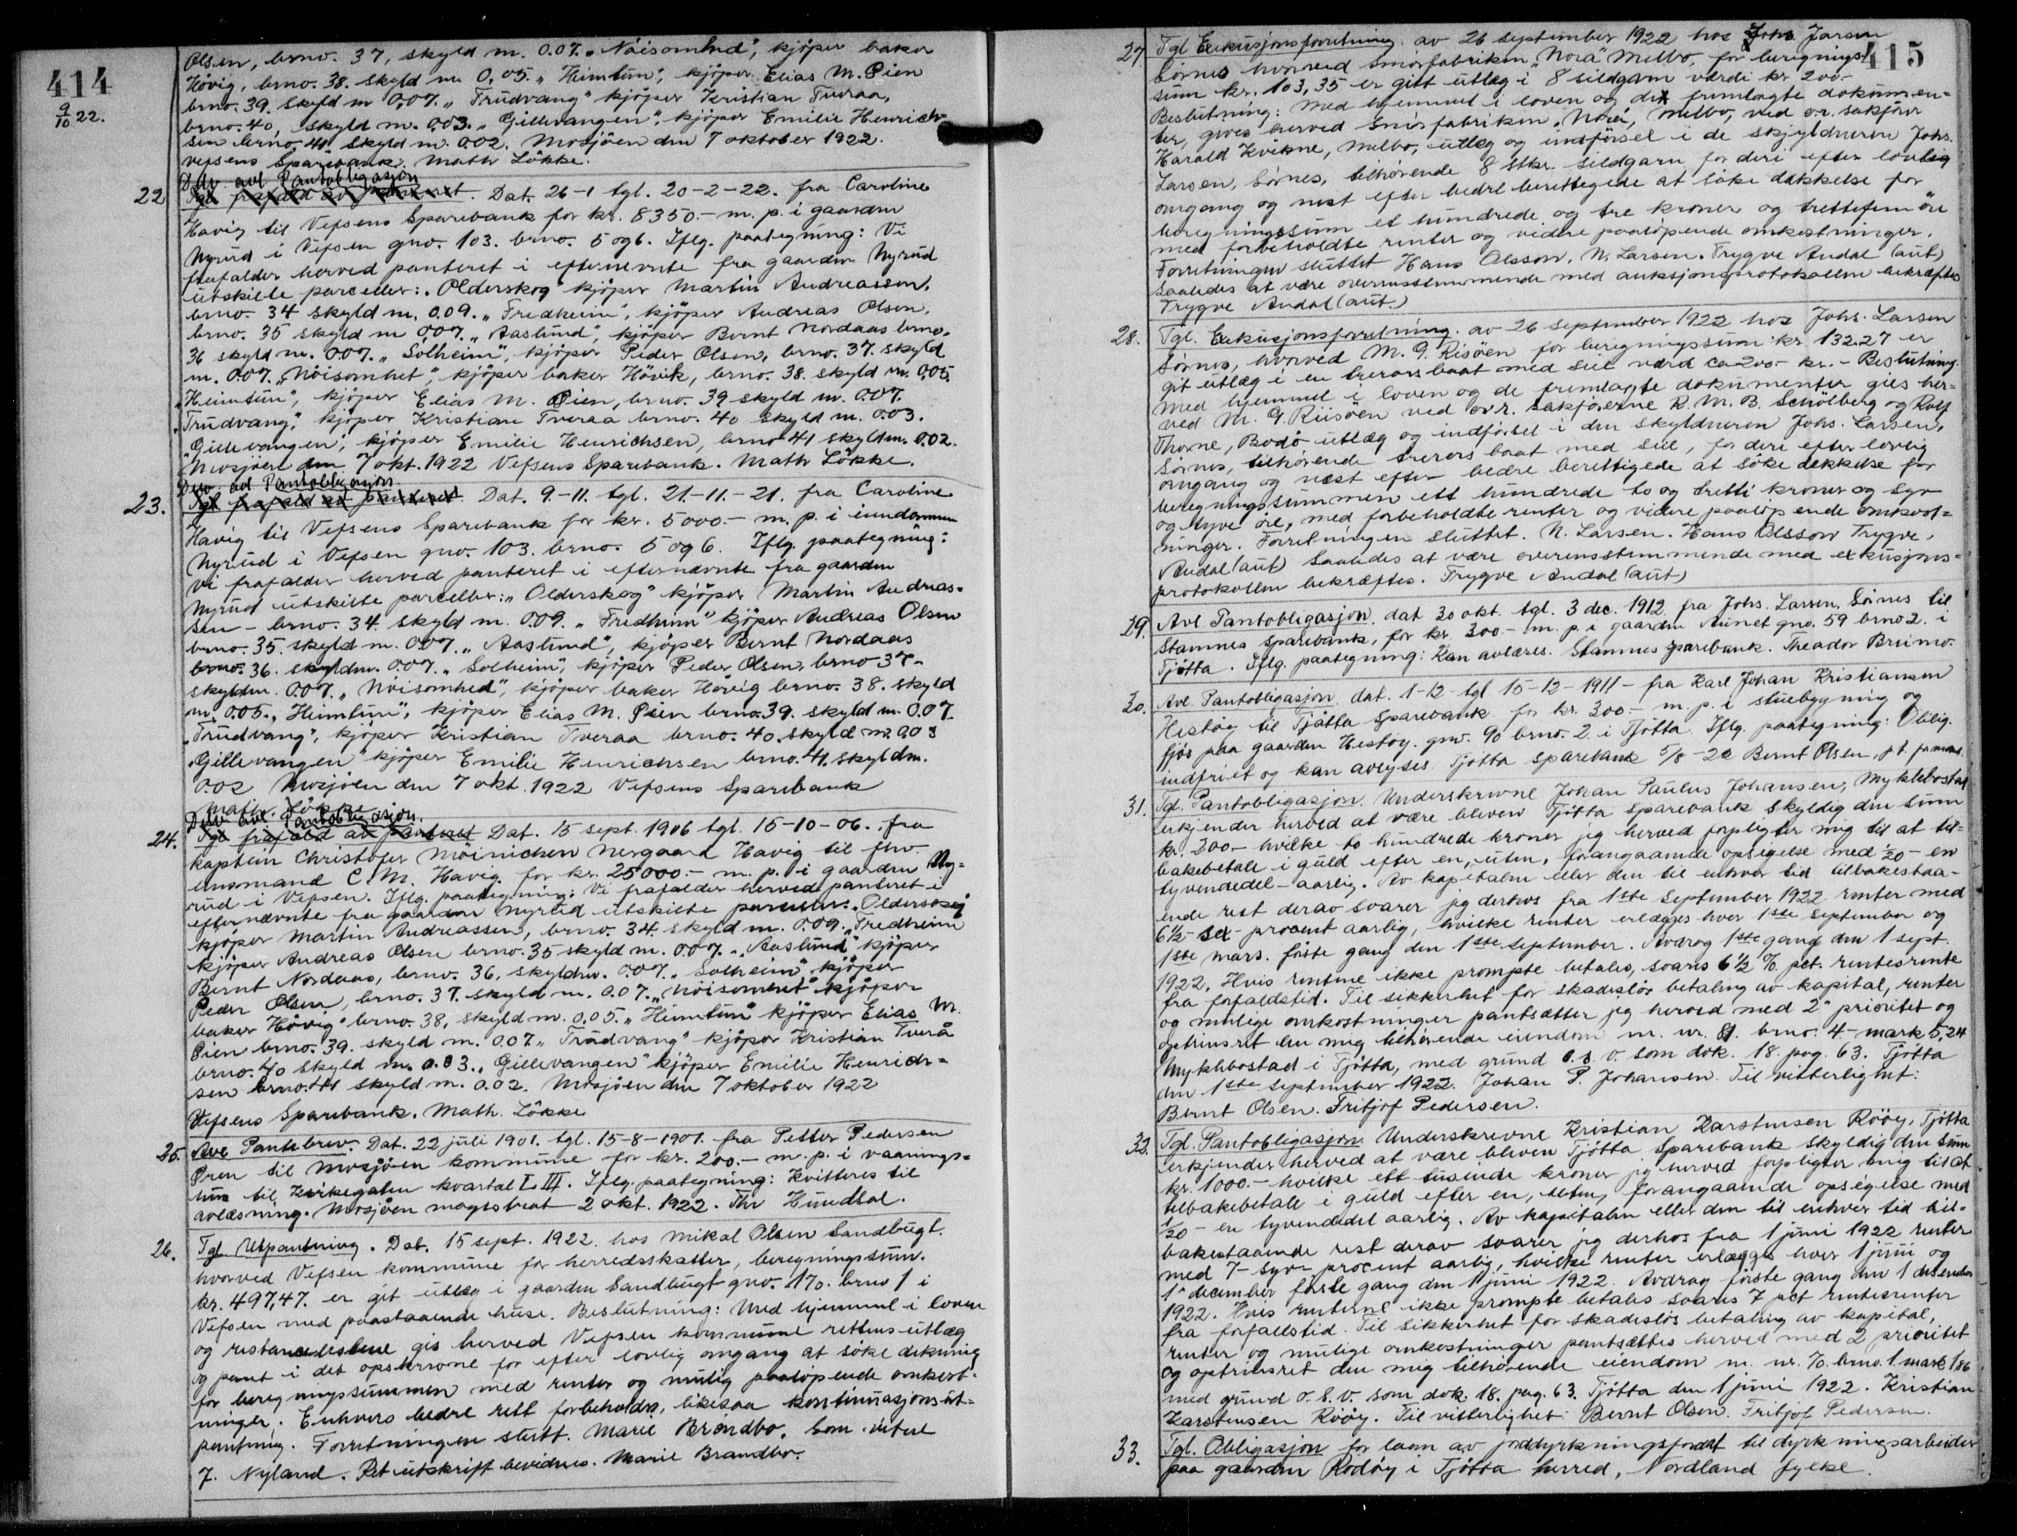 414
9/10 22.
Olsen, brno. 37, skyld m. 0.07. „Nöisomhed", kjöper baker
Hövig, brno. 38. skyld m 0,05. „Heimtun", kjöper Elias M. Øien
brno. 39. skyld m 0,07. „Trudvang" kjöper Kristian Tveraa,
brno. 40, skyld m. 0,03. „Gillevangen", kjöper Emilie Henrich-
sen brno. 41 skyld m. 0.02. Mosjöen den 7 oktober 1922.
Vefsens Sparebank. Math Lökke.
Delv. avl Pantobligasjon
22. Tgl. frafald av panteret. Dat. 26-1 tgl. 20-2-22. fra Caroline
Havig til Vefsens Sparebank for kr. 8350.- m. p. i gaarden
Nyrud i Vefsen gno. 103. brno. 5 og 6. Iflg. paategning: Vi
frafalder herved panteret i efternevnte fra gaarden Nyrud
utskilte parceller: „Olderskog" kjöper Martin Andreassen,
brno. 34 skyld m. 0.09. „Fredheim", kjöper Andreas Olsen,
brno. 35 skyld m 0,07. „Aaslund", kjöper Bernt Nordaas brno.
36 skyld m. 0.07. „Solheim", kjöper Peder Olsen, brno. 37. skyld
m. 0.07. „Nöisomhet", kjöper baker Hövik, brno. 38. skyld m. 0,05.
„Heimtun", kjöper Elias M. Øien, brno. 39 skyld m. 0.07.
„Trudvang", kjöper Kristian Tveraa brno. 40 skyld m. 0.03.
„Gillevangen", kjöper Emilie Henrichsen, brno 41 skyld m. 0.02.
Mosjöen den 7 okt. 1922 Vefsens Sparebank. Math Lökke.
Delv. avl Pantobligasjon
23. Tgl frafald av panteret. Dat. 9-11. tgl. 21-11-21. fra Caroline
Havig til Vefsens Sparebank for kr. 5000.- m. p. i eiendommen
Nyrud i Vefsen gno. 103. brno. 5 og 6. Iflg. paategning:
Vi frafalder herved panteret i efternævnte fra gaarden
Nyrud utskilte parceller: „Olderskog" kjöper Martin Andreas-
sen - brno. 34. skyld m. 0.09. „Fredheim" kjöper Andreas Olsen
brno. 35. skyld m. 0.07. „Aaslund", kjöper Bernt Nordaas
brno. 36. skyld m. 0.07. „Solheim", kjöper Peder Olsen, brno 37-
skyld m. 0.07. „Nöisomhed", kjöper baker Hövig brno. 38. skyld
m. 0.05. „Heimtun", kjöper Elias M. Øien brno. 39. skyld m. 0.07.
„Trudvang", kjöper Kristian Tveraa brno. 40. skyld m. 0.03
„Gillevangen" kjöper Emilie Henrichsen brno. 41. skyld m.
0.02 Mosjöen den 7 okt. 1922 Vefsens Sparebank
Math. Lökke
Delv avl. Pantobligasjon.
24. Tgl frafald av panteret Dat. 15 sept. 1906 tgl. 15-10-06. fra
kaptein Christofer Möinichen Nergaard Havig til fhv.
lensmand C. M. Havig for kr. 25000.- m. p. i gaarden Ny-
rud i Vefsen. Iflg. paategning: Vi frafalder herved panteret i
efternævnte fra gaarden Nyrud utskilte parceller: „Olderskog
kjöper Martin Andreassen, brno. 34. skyld m. 0.09. „Fredheim
kjöper Andreas Olsen brno. 35 skyld m. 0.07. „Aaslund" kjöper
Bernt Nordaas, brno. 36, skyld m. 0.07. „Solheim" kjöper
Peder Olsen, brno. 37. skyld m. 0.07. „Nöisomhet" kjöper
baker Hövig" brno. 38, skyld m. 0.05. „Heimtun" kjöper Elias M.
Øien brno. 39. skyld m. 0.07 „Trudvang" kjöper Kristian Tverå
brno. 40 skyld m. 0.03. „Gillevangen" kjöper Emilie Henrich-
sen brno. 41 skyld m. 0.02. Mosjöen den 7 oktober 1922
Vefsens Sparebank. Math. Lökke
25. Avl Pantebrev. Dat. 22 juli 1901. tgl. 15-8-1901. fra Petter Pedersen
Øren til Mosjöen kommune for kr. 200.- m. p. i vaanings-
hus til Kirkegaten kvartal L. III. Iflg. paategning: Kvitteres til
avlæsning. Mosjöen magistrat 2 okt. 1922. Thv Hundtal.
26. Tgl. Utpantning. Dat. 15 sept. 1922. hos Mikal Olsen Sandbugt.
hvorved Vefsen kommune for herredsskatter, beregningssum.
kr. 497,47. er git utlæg i gaarden Sandbugt gno. 170. brno 1 i
Vefsen med paastaaende huse. Beslutning: Med hjemmel i loven
og restancelistene gis herved Vefsen kommune rettens utlæg
og pant i det opskrevne for efter lovlig omgang at söke dekning
for beregningssummen med renter og mulig paalöpende omkost-
ninger. Enhvers bedre rett forbeholdes, likesaa kontinuasjonsut-
pantning. Forretningen slutt. Marie Bröndbo. Som vitne
J. Nyland. Ret utskrift bevidnes. Marie Brandbo.
415
27. Tgl Eekusjonsforretning. av 26 september 1922 hos Johs Larsen
Sörnes hvorved Smörfabriken „Nora" Melbo, for beregnings-
sum kr. 103,35 er gitt utlæg i 8 sildgarn værdi kr 200.-
Beslutning: Med hjemmel i loven og de fremlagte dokumen-
ter, gives herved Smörfabriken „Nora", Melbo, ved o.r. sakförer
Harald Kvikne, Melbo, utlæg og indförsel i de skyldneren Johs.
Larsen, Sörnes, tilhörende 8 stkr. sildgarn for deri efter lovlig
omgang og nest efter bedre berettigede at söke dækkelse for
beregningssum et hundrede og tre kroner og trettefem öre
med forbeholdte renter og videre paalöpende omkostninger.
Forretningen sluttet Hans Olsson. N. Larsen. Trygve Andal (aut)
Saaledes at være overensstemmende med auksjonsprotokollen bekræftes
Trygve Andal (aut.)
28. Tgl. Eekusjonsforretning. av 26 september 1922 hos Johs. Larsen
Sörnes, hvorved M. G. Risöen for beregningssum kr. 132.27 er
git utlæg i en trerorsbaat med seil værd ca 200.- kr. - Beslutning.
Med hjemmel i loven og de fremlagte dokumenter gies her-
ved M. G Riisöen ved ovr. sakförerne R. M. B. Schölberg og Rolf
Thorne, Bodö utlæg og indförsel i den skyldneren Johs. Larsen,
Sörnes, tilhörende trerors baat med seil, for deri efter lovlig
omgang og næst efter bedre berettigede at söke dekkelse for
beregningssummen ett hundrede to og tretti kroner og syv
og tyve öre, med forbeholdte renter og videre paalöpende omkost-
ninger. Forretningen sluttet. N. Larsen. Hans Olsson Trygve,
Andal (aut) Saaledes at være overensstemmende med ekusjons-
protokollen bekræftes. Trygve Andal (aut)
29. Avl Pantobligasjon. dat 30 okt. tgl. 3 dec. 1912 fra Johs. Larsen, Sörnes til
Stamnes Sparebank, for kr 300- m. p. i gaarden Aunet gno. 59 brno 2. i
Tjötta. Iflg. paategning: Kan avlæses. Stamnes Sparebank. Theador Brunvo.
30. Avl Pantobligasjon dat. 1-12 tgl 15-12-1911- fra Karl Johan Kristiansen
Hestöy til Tjötta Sparebank for kr. 300- m. p. i stuebygning og
fjös paa gaarden Hestöy. gno. 90 brno. 2. i Tjötta. Iflg. paategning: Oblig.
indfriet og kan avlyses. Tjötta Sparebank 5/8-20 Bernt Olsen, p.t. formand.
31. Tgl. Pantobligasjon. Underskrevne Johan Paulus Johansen, Myklebostad
erkjender herved at være bleven Tjötta sparebank skyldig den sum
kr. 200- hvilke to hundrede kroner jeg herved forpligter mig til at til-
bakebetale i guld efter en, uten, forangaaende opsigelse med 1/20- en
tyvendedel - aarlig. Av kapitalen eller den til enhver tid tilbakestaa-
ende rest derav svarer jeg derhos fra 1ste September 1922 renter med
6½- sex- procent aarlig, hvilke renter erlægges hver 1ste September og
1ste mars. förste gang den 1ste September. Avdrag 1ste gang den 1 sept.
1922. Hvis rentene ikke prompte betales, svares 6½ % pct. rentesrente
fra forfaldstid. Til sikkerhet for skadeslös betaling av kapital, renter
og mulige omkostninger pantsætter jeg herved med 2 prioritet og
optrinsret den mig tilhörende eiendom m. nr. 8. brno. 4- mark 5,24
Myklebostad i Tjötta, med grund o. s. v. som dok. 18. pag. 63. Tjötta
den 1ste September 1922. Johan P. Johansen. Til vitterlighet:
Bernt Olsen. Fritjof Pedersen.
32. Tgl. Pantobligasjon. Underskrevne Kristian Karstensen Rööy, Tjötta
erkjender herved at være bleven Tjötta Sparebank skyldig den sum
kr. 1000.- hvilke ett tusinde kroner jeg herved forpligter mig til at
tilbakebetale i guld efter en, uten, forangaaende opsigelse med
1/20- en tyvendedel aarlig. Av kapitalen eller den til enhver tid til-
bakestaaende rest derav svarer jeg derhos fra 1 juni 1922 renter
med 7- syv- procent aarlig, hvilke renter erlægges hver 1 juni og
1 december förste gang den 1 juni 1922. Avdrag förste gang den 1 december
1922. Hvis renterne ikke prompte betales svares 7 pct rentesrenter
fra forfallstid. Til sikkerhet for skadeslös betaling av kapital,
renter og mulige omkostninger pantsættes herved med 2 prioritet
og optrinsret den mig tilhörende eiendom m. nr. 70. brno. 1. mark 1,86
med grund o. s. v. som dok. 18. pag. 63. Tjötta den 1 juni 1922. Kristian
Karstensen Rööy. Til vitterlighet: Bernt Olsen. Fritjof Pedersen.
33. Tgl. Obligasjon for laan av jorddyrkningsfondet til dyrkningsarbeider
paa gaarden Rödöy i Tjötta herred, Nordland fylke.